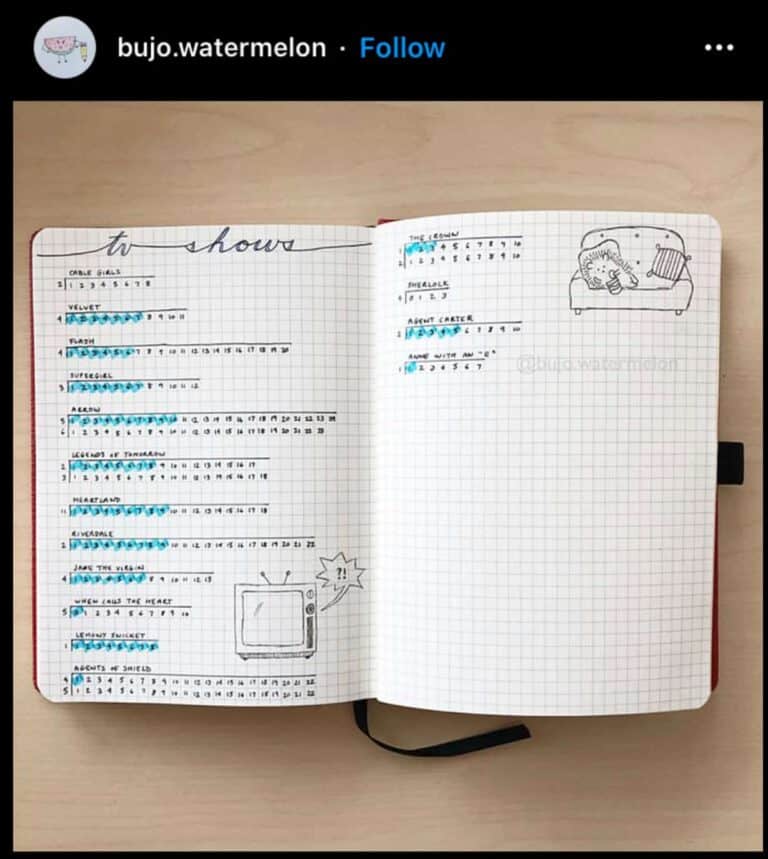 bujo.watermelon · Follow
tv shows
CABLE GIRLS
2 1 2 3 4 5 6 7 8
VELVET
4 1 2 3 4 5 6 7 8 9 10 11
FLASH
4 1 2 3 4 5 6 7 8 9 10 11 12 13 14 15 16 17 18 19 20
SUPERGIRL
3 1 2 3 4 5 6 7 8 9 10 11 12
ARROW
5 1 2 3 4 5 6 7 8 9 10 11 12 13 14 15 16 17 18 19 20 21 22 23
6 1 2 3 4 5 6 7 8 9 10 11 12 13 14 15 16 17 18 19 20 21 22 23
LEGENDS OF TOMORROW
2 1 2 3 4 5 6 7 8 9 10 11 12 13 14 15 16 17
3 1 2 3 4 5 6 7 8 9 10 11 12 13 14 15 16 17 18
HEARTLAND
11 1 2 3 4 5 6 7 8 9 10 11 12 13 14 15 16 17 18
RIVERDALE
2 1 2 3 4 5 6 7 8 9 10 11 12 13 14 15 16 17 18 19 20 21 22
JANE THE VIRGIN
4 1 2 3 4 5 6 7 8 9 10 11 12 13
WHEN CALLS THE HEART
5 0 1 2 3 4 5 6 7 8 9 10
LEMONY SNICKET
1 1 2 3 4 5 6 7 8
AGENTS OF SHIELD
4 1 2 3 4 5 6 7 8 9 10 11 12 13 14 15 16 17 18 19 20 21 22
5 1 2 3 4 5 6 7 8 9 10 11 12 13 14 15 16 17 18 19 20 21 22
?!
THE CROWN
1 1 2 3 4 5 6 7 8 9 10
2 1 2 3 4 5 6 7 8 9 10
SHERLOCK
4 0 1 2 3
AGENT CARTER
2 1 2 3 4 5 6 7 8 9 10
ANNE WITH AN "E"
1 1 2 3 4 5 6 7
@bujo.watermelon